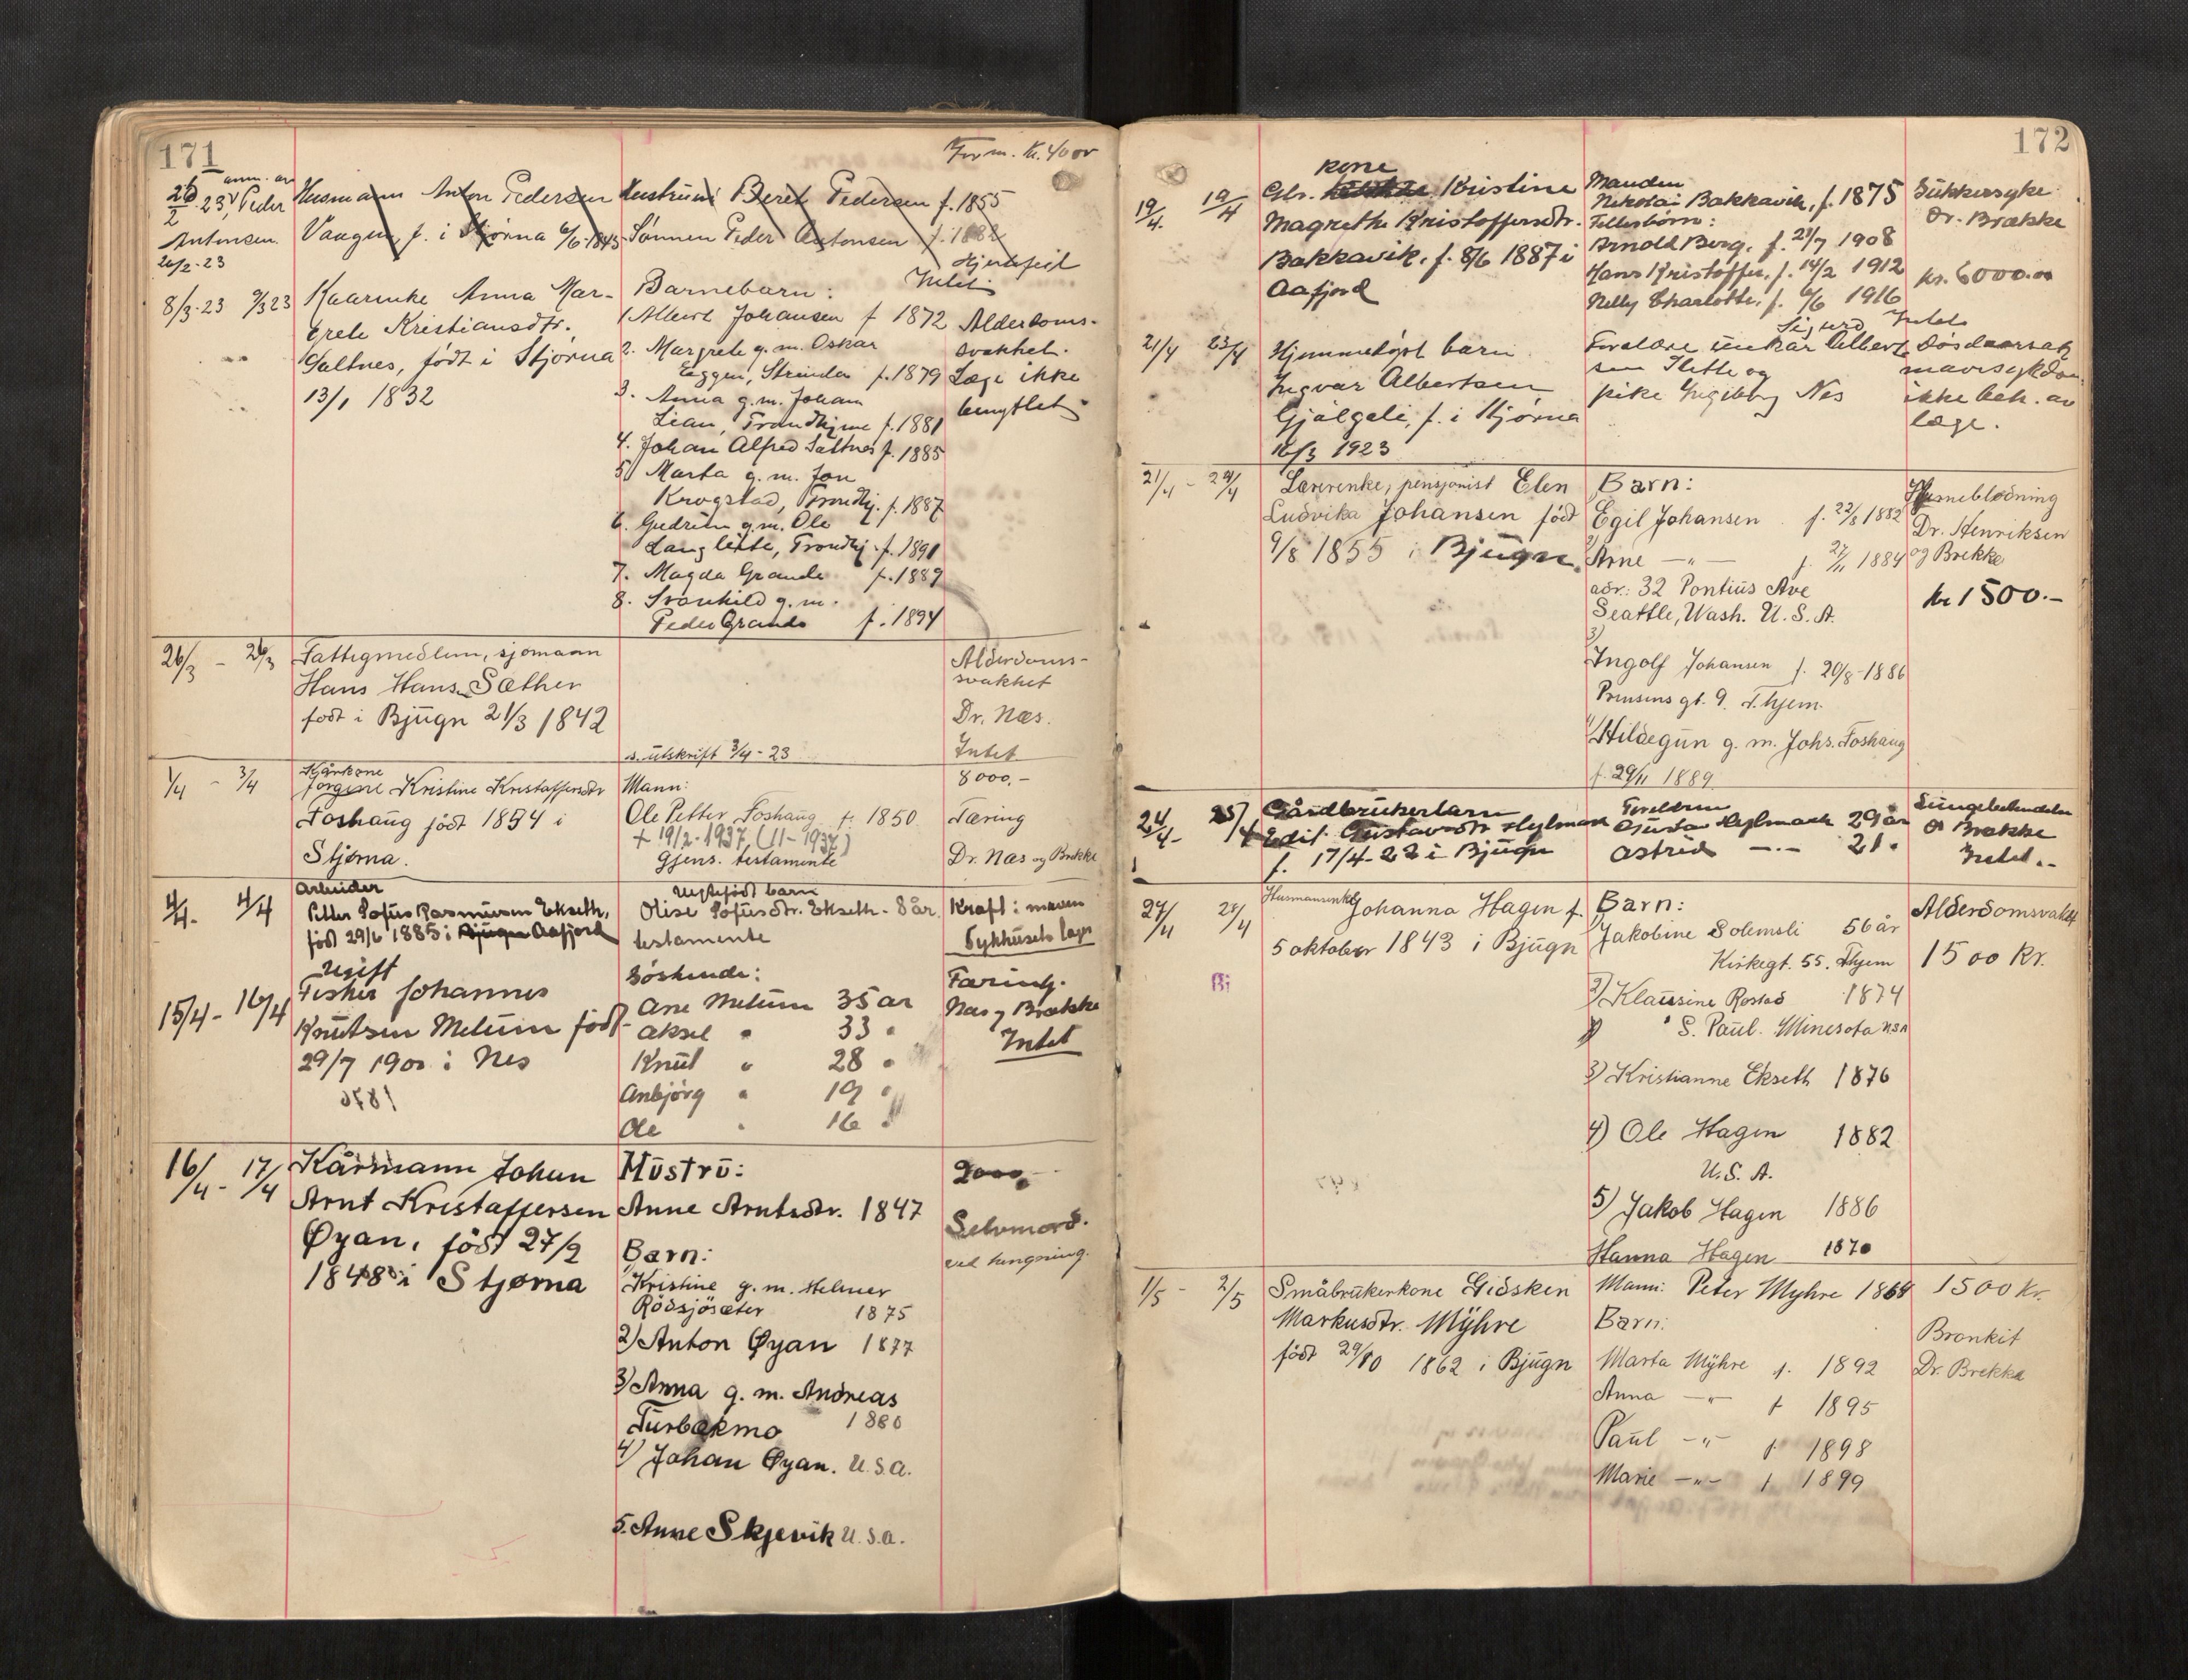 171
Form. Kr. 4000
anm. av
26/2 23, Peder
Antonsen
26/2-23
Husmann Anton Pedersen
Vangen, f. i Stjørna 6/6-1843
Hustru: Beret Pedersen f. 1855
Sønnen Peder Antonsen f. 1882
Hjertefeil
Intet
8/3-23 9/3 23
Kaarenke Anna Mar-
grete Kristiansdtr.
Saltnes, født i Stjørna
13/1 1832
Barnebarn:
1 Albert Johansen f 1872
2. Margrete g. m. Oskar
Eggen, Strinda f. 1879
3. Anna g. m. Johan
Lian, Trondhjem f. 1881
4. Johan Alfred Saltnes f. 1885
5) Marta g. m. Jon
Krogstad, Trondhj. f. 1887
6. Gudrun g. m. Ole
Langlette, Trondhj. f. 1891
7. Magda Grande f. 1889
8. Svanhild g. m.
Peder Grande f. 1894
Alderdoms-
svakhet.
Læge ikke
benyttet
26/3 - 27/3
Fattigmedlem, sjømann
Hans Hans. Sæther
født i Bjugn 21/3 1842
Alderdoms-
svakhet
Dr. Næs.
Intet
s. utskrift 3/4-23
1/4 - 3/4
Kårkone
Jørgine Kristine Kristaffersdtr
Foshaug født 1854 i
Stjørna.
Mann:
Ole Petter Foshaug f. 1850
+ 19/2-1937, (11-1937)
Gjens. testamente
8000,-
Tæring
Dr. Næs og Brekke
4/4. 4/4
Arbeider
Petter Sofus Rasmussen Ekseth,
født 29/6 1885 i Bjugn Aafjord
uegtefødt barn
Olise Sofusdtr. Ekseth - 8 år.
testamente
Kræft i maven
Sykhusets læge
15/4 - 16/4
Ugift
Fisker Johannes
Knutsen Melum født
29/7 1900 i Nes
Søskende:
Ane Melum 35 år
Aksel " 33 "
Knut " 28 "
Anbjørg " 19 "
Ole " 16 "
Tæring.
Næs og Brække
Intet
16/4 - 17/4
Kårmann Johan
Arnt Kristaffersen
Øyan, født 27/9
1848 i Stjørna
Hustru:
Anne Arntsdtr. 1847
Barn:
Kristine g. m. Helmer
Rødsjøsæter 1875
2) Anton Øyan 1877
3) Anna g. m. Andreas
Turbekmo 1880
4) Johan Øyan. U.S.A.
5. Anne Skjervik U.S.A.
2000,
Selvmord.
ved hængning.
172
19/4. 19/4
kone
Gbr. Kristine
Magrethe Kristoffersdtr.
Bakkavik, f. 8/6 1887 i
Aafjord
Manden
Nikolai Bakkavik, f. 1875
Fellesbørn:
Arnold Berg, f. 21/7 1908
Hans Kristoffer, f. 14/2 1912
Nelly Charlotte, f. 6/6 1916
Sukkersyke
Dr. Brække
kr. 6000.00
21/4 23/4
Hjemmedøpt barn
Ingvar Albertsen
Gjølgali, f. i Stjørna
16/3 1923
Sigurd
Foreldre unkar Albert-
sen Slette og
pike Ingeborg Nes
Intet
Dødsaarsak
mavesykdom
ikke beh. av
læge.
21/4 - 24/4
Lærerenke, pensjonist Elen
Ludvika Johansen født
9/8 1855 i Bjugn
Barn:
Egil Johansen f. 22/8 1882
Arne -"- f. 27/11 1884
adr.: 32 Pontius Ave
Seattle, Wash. U. S. A.
3)
Ingolf Johansen f. 20/8-1886
Prinsens gt. 9. T.hjem.
4) Hildegun g. m. Johs. Foshaug
f. 29/11 1889
Hjerneblødning
Dr. Henriksen
og Brekke
kr 1500.-
24/4 - 25/4
Gårdbrukerbarn
Edit Gustavsdtr Heglmark
f. 17/4-22 i Bjugn
Foreldre
Gustav Heglmark 29 år
Astrid -"- 21 "
Lungebetendelse
Dr Brække
Intet.-
27/4 28/4
Husmannsenke Johanna Hagen f.
5 oktober 1843 i Bjugn
Bj
Barn:
Jakobine Solemsli 56 år
Kirkegt. 55. Thjem
2) Klausine Rostad 1874
S. Paul. Minesota USA
3) Kristianne Ekseth 1876
4) Ole Hagen 1882
U. S. A.
5) Jakob Hagen 1886
Hanna Hagen 1870
Alderdomsvakh
1500 Kr.
1/5 - 2/5
Småbrukerkone Gidsken
Markusdtr. Myhre
født 29/10 1862 i Bjugn
Mann: Peter Myhre 1864
Barn:
Marta Myhre f. 1892
Anna -"- f 1895
Paul -"- f. 1898
Marie -"- f 1899
1500 kr.
Bronkit
Dr. Brekke